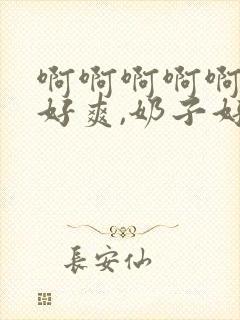 啊啊啊啊啊
好爽,奶子好
長安仙